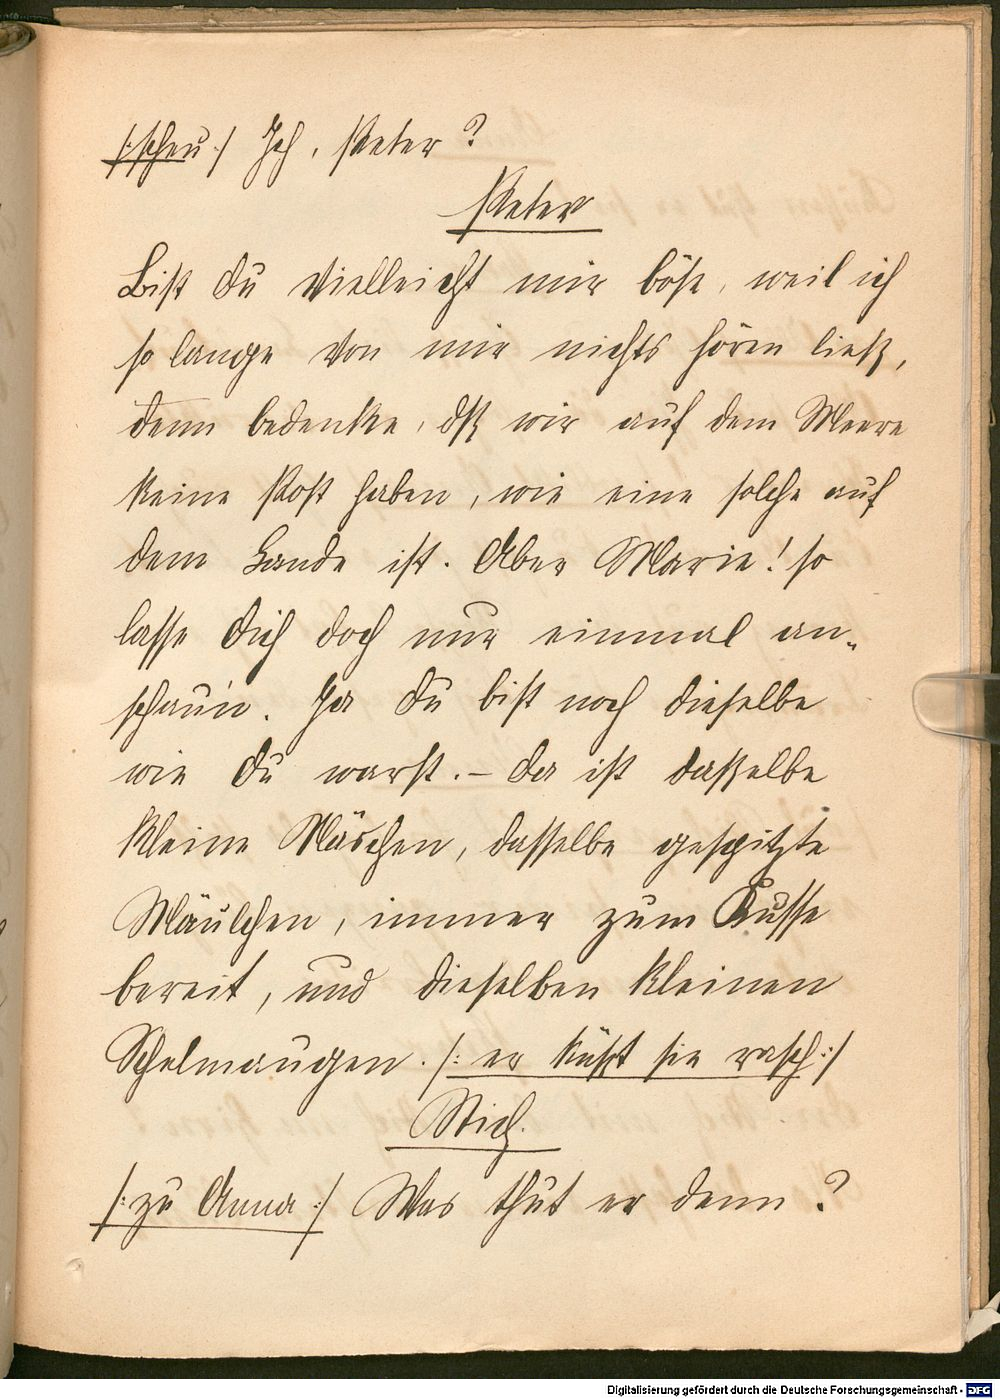 /:scheu:/ Ich, Peter?
Peter
Bist du vielleicht mir böse, weil ich
so lange von mir nichts hören ließ,
denn bedenke, dß wir auf dem Meere
keine Post haben, wie eine solche auf
dem Lande ist. Aber Marie! so
lasse dich doch nur einmal an-
schau'n. Ja du bist noch dieselbe
wie du warst. – da ist dasselbe
kleine Näschen, dasselbe gespitzte
Mäulchen, immer zum Kusse
bereit, und dieselben kleinen
Schelmaugen. /: er küßt sie rasch :/
Mich.
/: zu Anna :/ Was thut er denn?
Digitalisierung gefördert durch die Deutsche Forschungsgemeinschaft - DFG